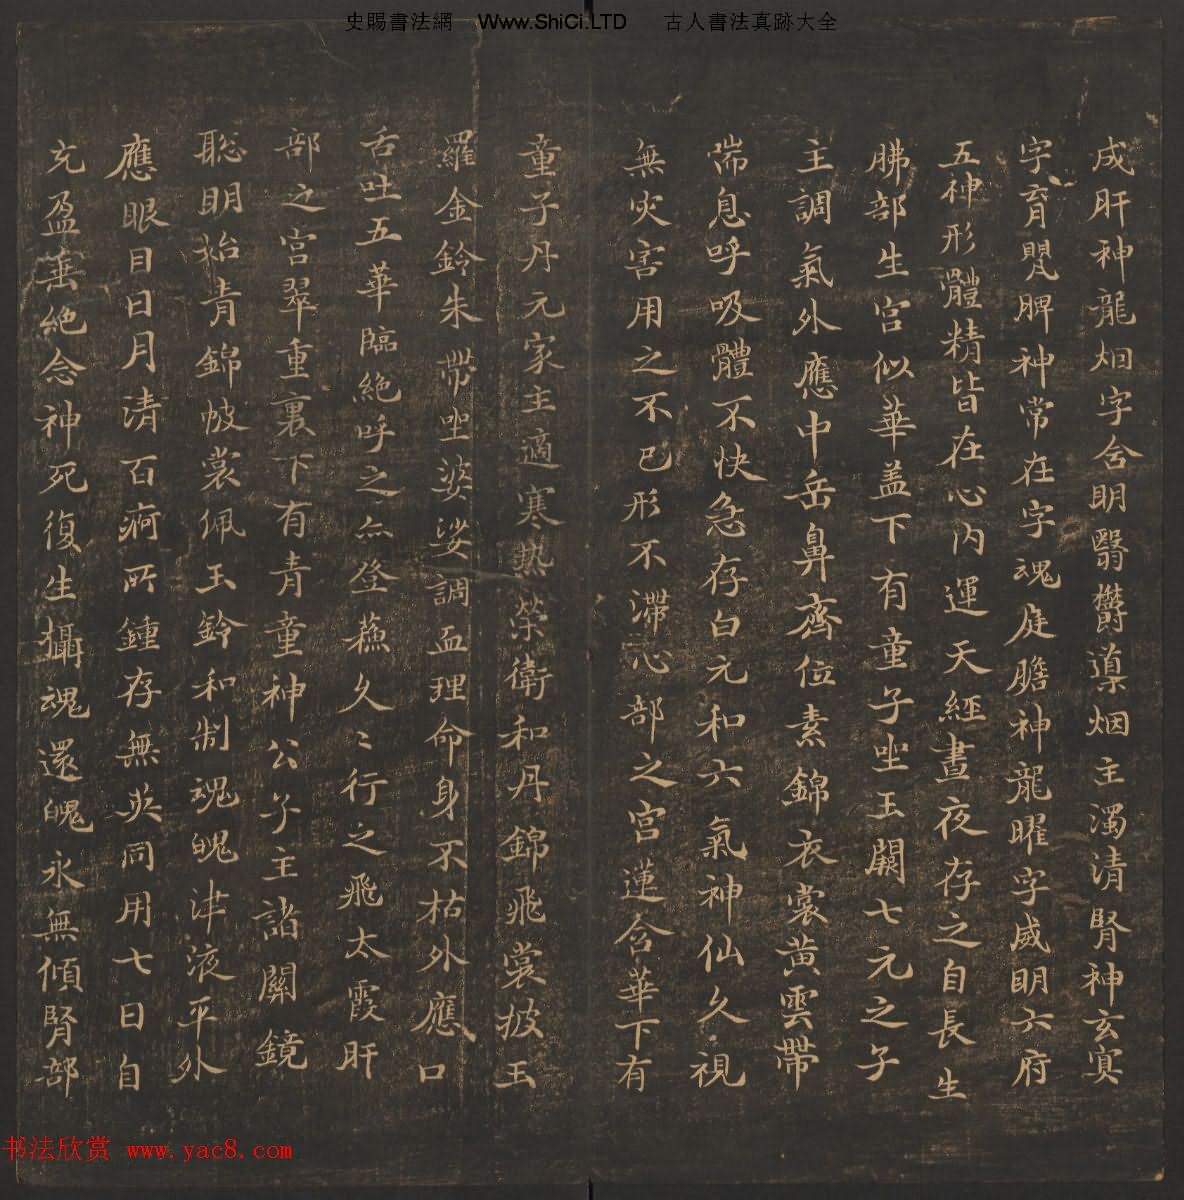 史賜書法網 Www.ShiCi.LTD 古人書法真跡大全
成肝神龍烟字含明翳鬱漕烟主濁清腎神玄冥
字育嬰脾神常在字魂庭膽神龍曜字威明六府
五神形體精皆在心內運天經晝夜存之自長生
肺部生宮似華盖下有童子坐玉闕七元之子
主調氣外應中岳鼻齊位素錦衣裳黃雲帶
喘息呼吸體不快急存白元和六氣神仙久視
無灾害用之不已形不滯心部之宮蓮含華下有
童子丹元家主適寒热榮衛和丹錦飛裳披玉
羅金鈴朱帶坐婆娑調血理命身不枯外應口
舌吐五華臨絕呼之亦登蘓久〻行之飛太霞肝
部之宮翠重裏下有青童神公子主諸關鏡
聡明始青錦帔裳佩玉鈴和制魂魄津液平外
應眼目日月清百痾所鍾存無英同用七日自
充盈垂絕念神死復生攝魂還魄永無傾腎部
书法欣赏 www.yac8.com